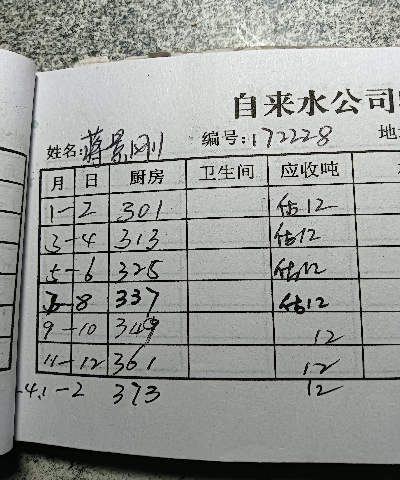 自来水公司
姓名:蒋景刚 编号:172228 地
月 日 厨房 卫生间 应收吨
1-2 301 估12
3-4 313 估12
5-6 325 估12
7-8 337 估12
9-10 349 12
11-12 361 12
-4.1-2 373 12